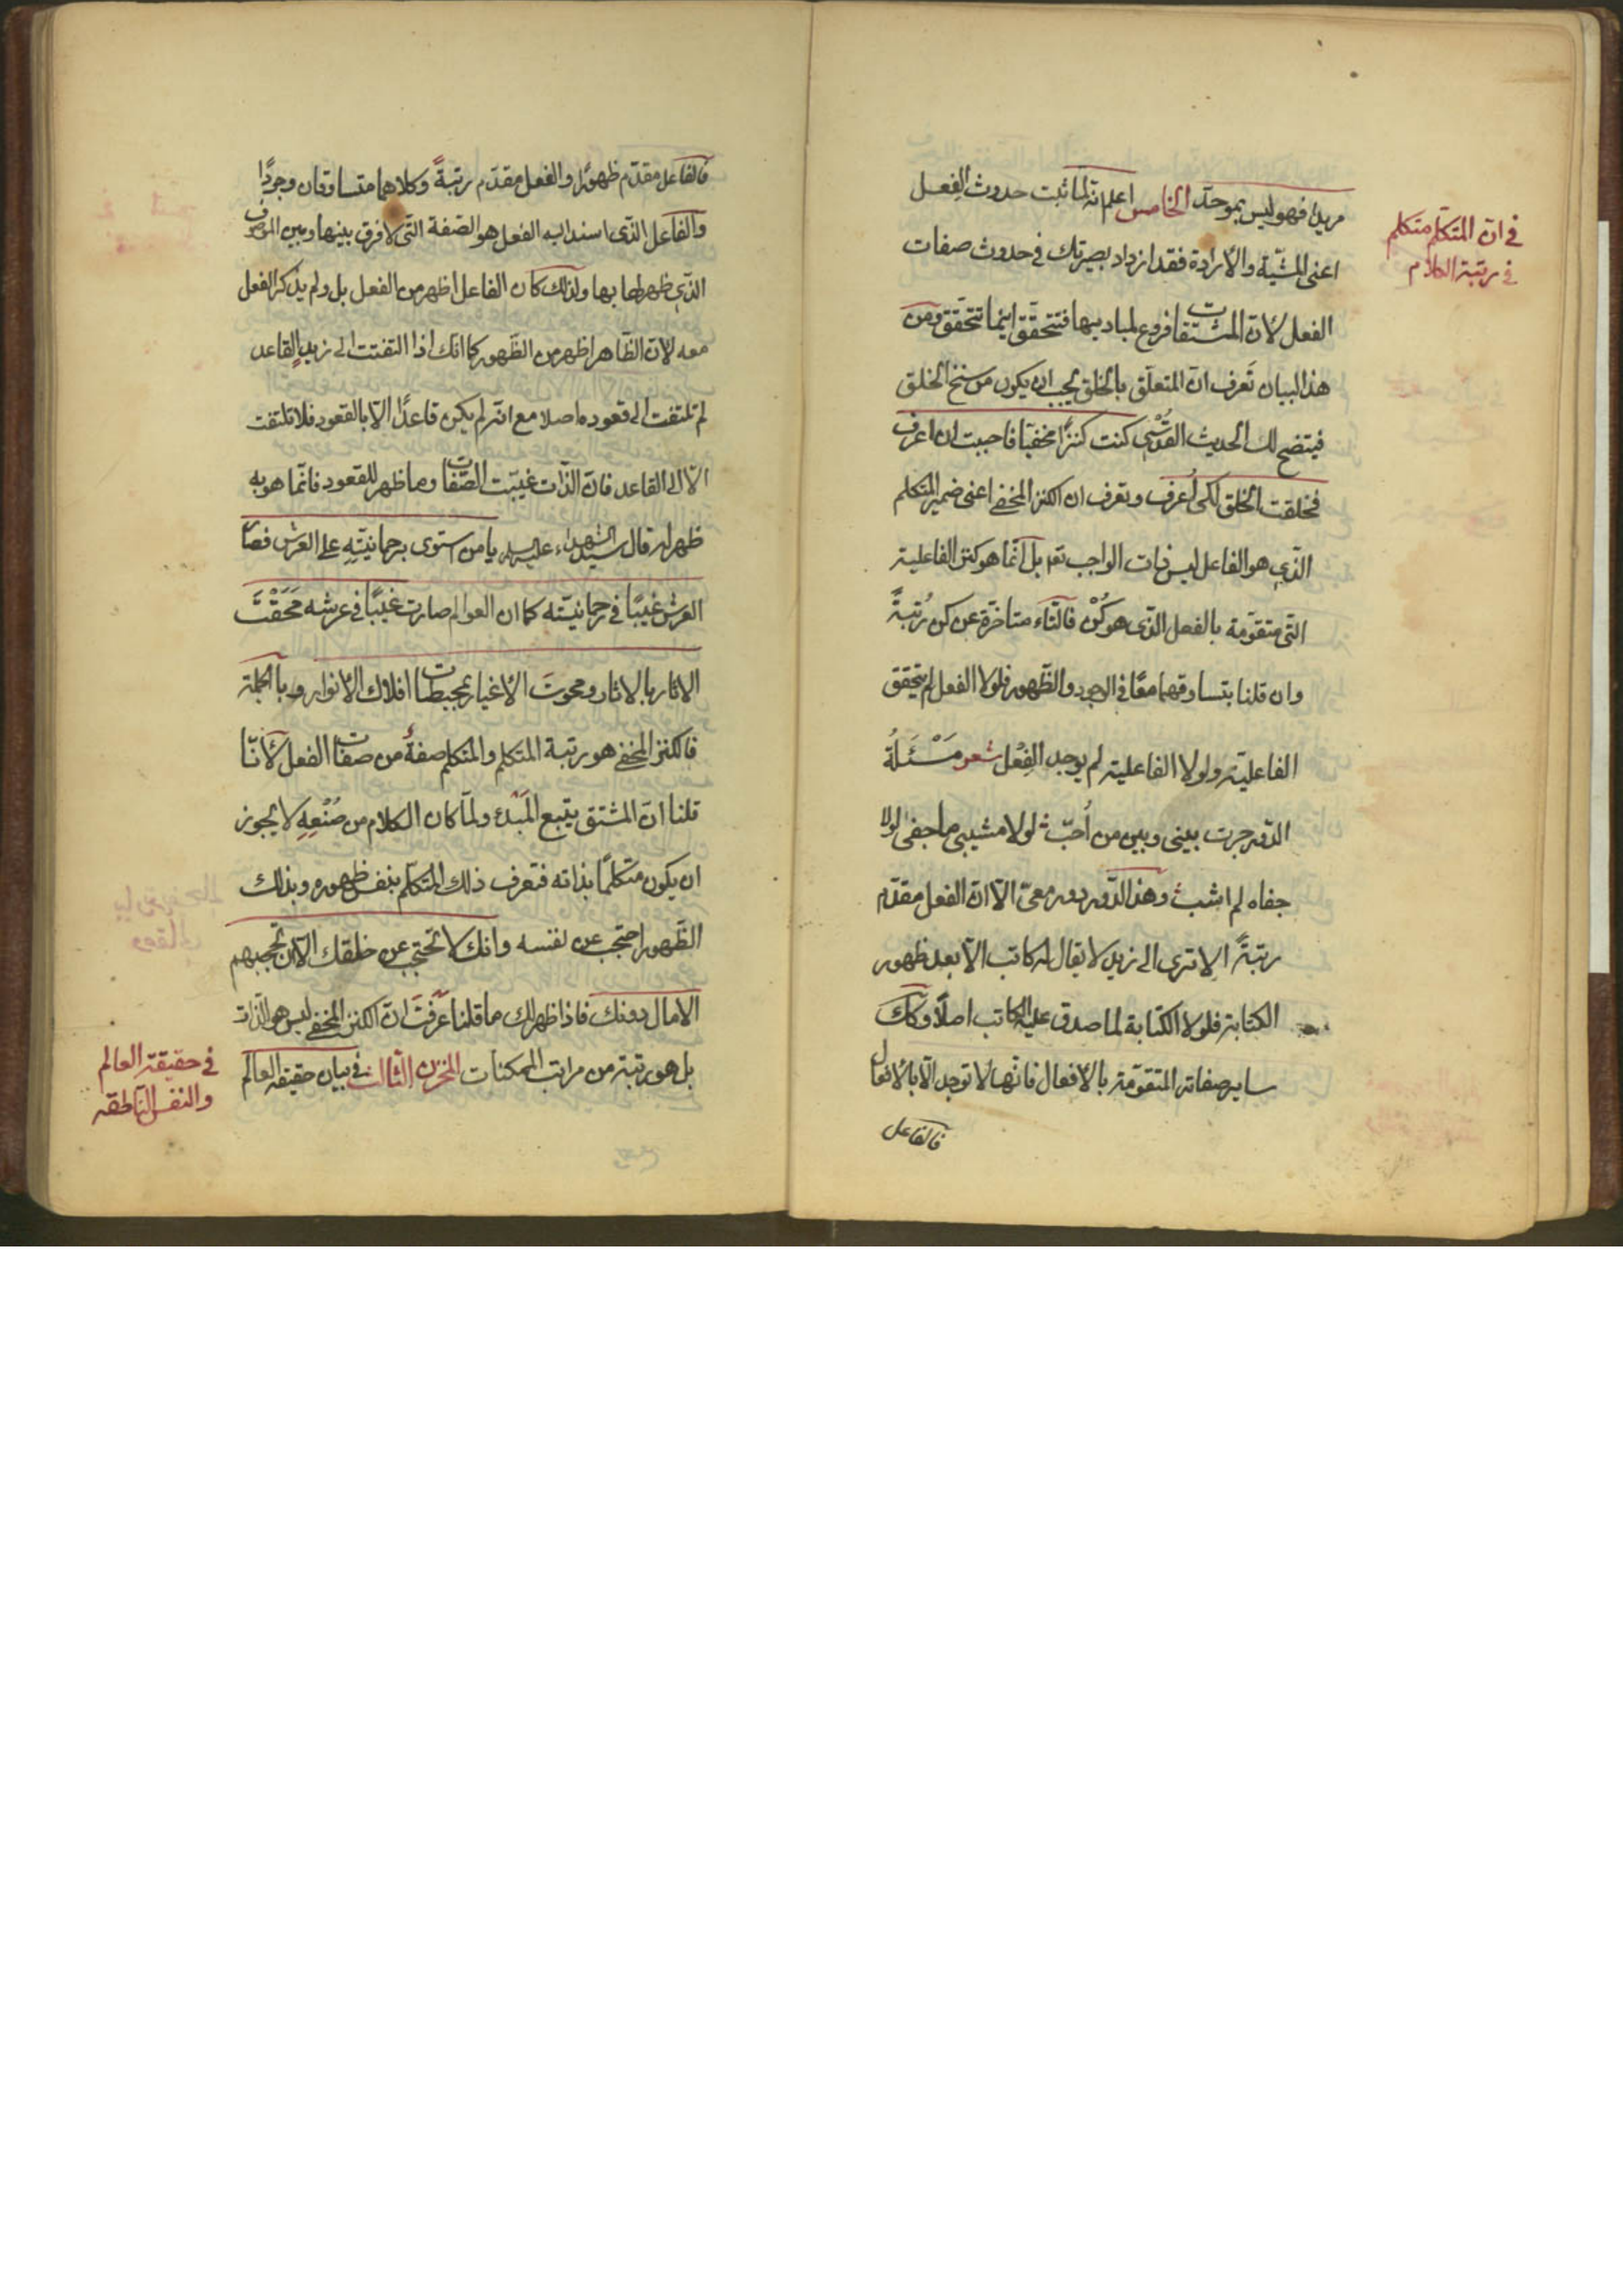 في ان المتكلم متكلم
في رتبة الكلام
مريدا فهو ليس بموحّد الخامس اعلم انه لما ثبت حدوث الفعل
اعنى المشيّة والارادة فقد ازداد بصيرتك في حدوث صفات
الفعل لانّ المشتقات فروع لمباديها فتتحقّق اينما تتحقّق ومن
هذا البيان تَعرف انّ المتعلّق بالخلق يجب ان يكون من سنخ الخلق
فيتضح لك الحديث القُدْسى كنت كنزًا مخفيّا فاحببت ان اعرف
فخلقت الخلق لكى اُعرف وتعرف ان الكنز المخفى اعنى ضمير المتكلم
الّذى هو الفاعل ليس ذات الواجب تعه بل انّما هو كنز الفاعلية
التى متقوّمة بالفعل الّذى هو كُنْ فالتّاء متاخّرة عن كن رُتبةً
وان قلنا بتساوقهما معًا فى الوجود والظّهور فلولا الفعل لم يتحقق
الفاعلية ولولا الفاعلية لم يوجد الفِعْل شعر مَسْئَلَةُ
الدّور جرت بينى وبين من اُحبّ ث لولا مشيبى ما جفى لولا
جفاه لم اشب ث وهذا الدّور دور معىّ الّا انّ الفعل مقدّم
رتبةً الا ترى الى زيد لا يقال له كاتب الّا بعد ظهور
الكتابة فلولا الكتابة لما صدق عليه الكاتب اصلًا وكذلك
ساير صفاته المتقوّمة بالافعال فانّها لا توجد الّا بالافعال
فالفاعل
فالفاعل مقدّم ظهورًا والفعل مقدّم رتبةً وكلاهما متساوقان وجودًا
والفاعل الّذى اسند اليه الفعل هو الصّفة التّى لا فرق بينها وبين الموصوف
الّذى ظهر لها بها ولذلك كان الفاعل اظهر من الفعل بل ولم يذكر الفعل
معه لانّ الظّاهر اظهر من الظّهور كما انّك اذا التفتت الى زيد القاعد
لم تلتفت الى قعوده اصلا مع انّه لم يكن قاعدًا الّا بالقعود فلا تلتفت
الّا الى القاعد فانّ الذّات غيبّت الصّفات وما ظهر للقعود فانّما هو به
ظهر له قال سيّد الشهداء عليه السلام يا من استوى برحمانيّتِهِ على العرش فصار
العرش غيبًا فى رحمانيّته كما ان العوالم صارت غيبًا فى عرشه مَحَقْتَ
الاثار بالاثار ومحوت الاغيار بمحيطات افلاك الانوار وبالجملة
فالكنز المخفى هو رتبة المتكلم والمتكلم صفة من صفات الفعل لانّا
قلنا انّ المشتق يتبع المَبْدء ولمّا كان الكلام من صُنْعِهِ لا يجوز
ان يكون متكلّمًا بذاته فتعرف ذلك المتكلّم بنفس ظهوره وبذلك
الظّهور احتجب عن نفسه وانك لا تحتجب عن خلقك الّا ان تحجبهم
الامال دونك فاذا ظهر لك ما قلنا عَرَفْتَ انّ الكنز المخفى ليس هو الذّات
بل هو رتبة من مراتب الممكنات المخزن الثّالث فى بيان حقيقة العالم
في حقيقة العالم
والنفس الناطقة